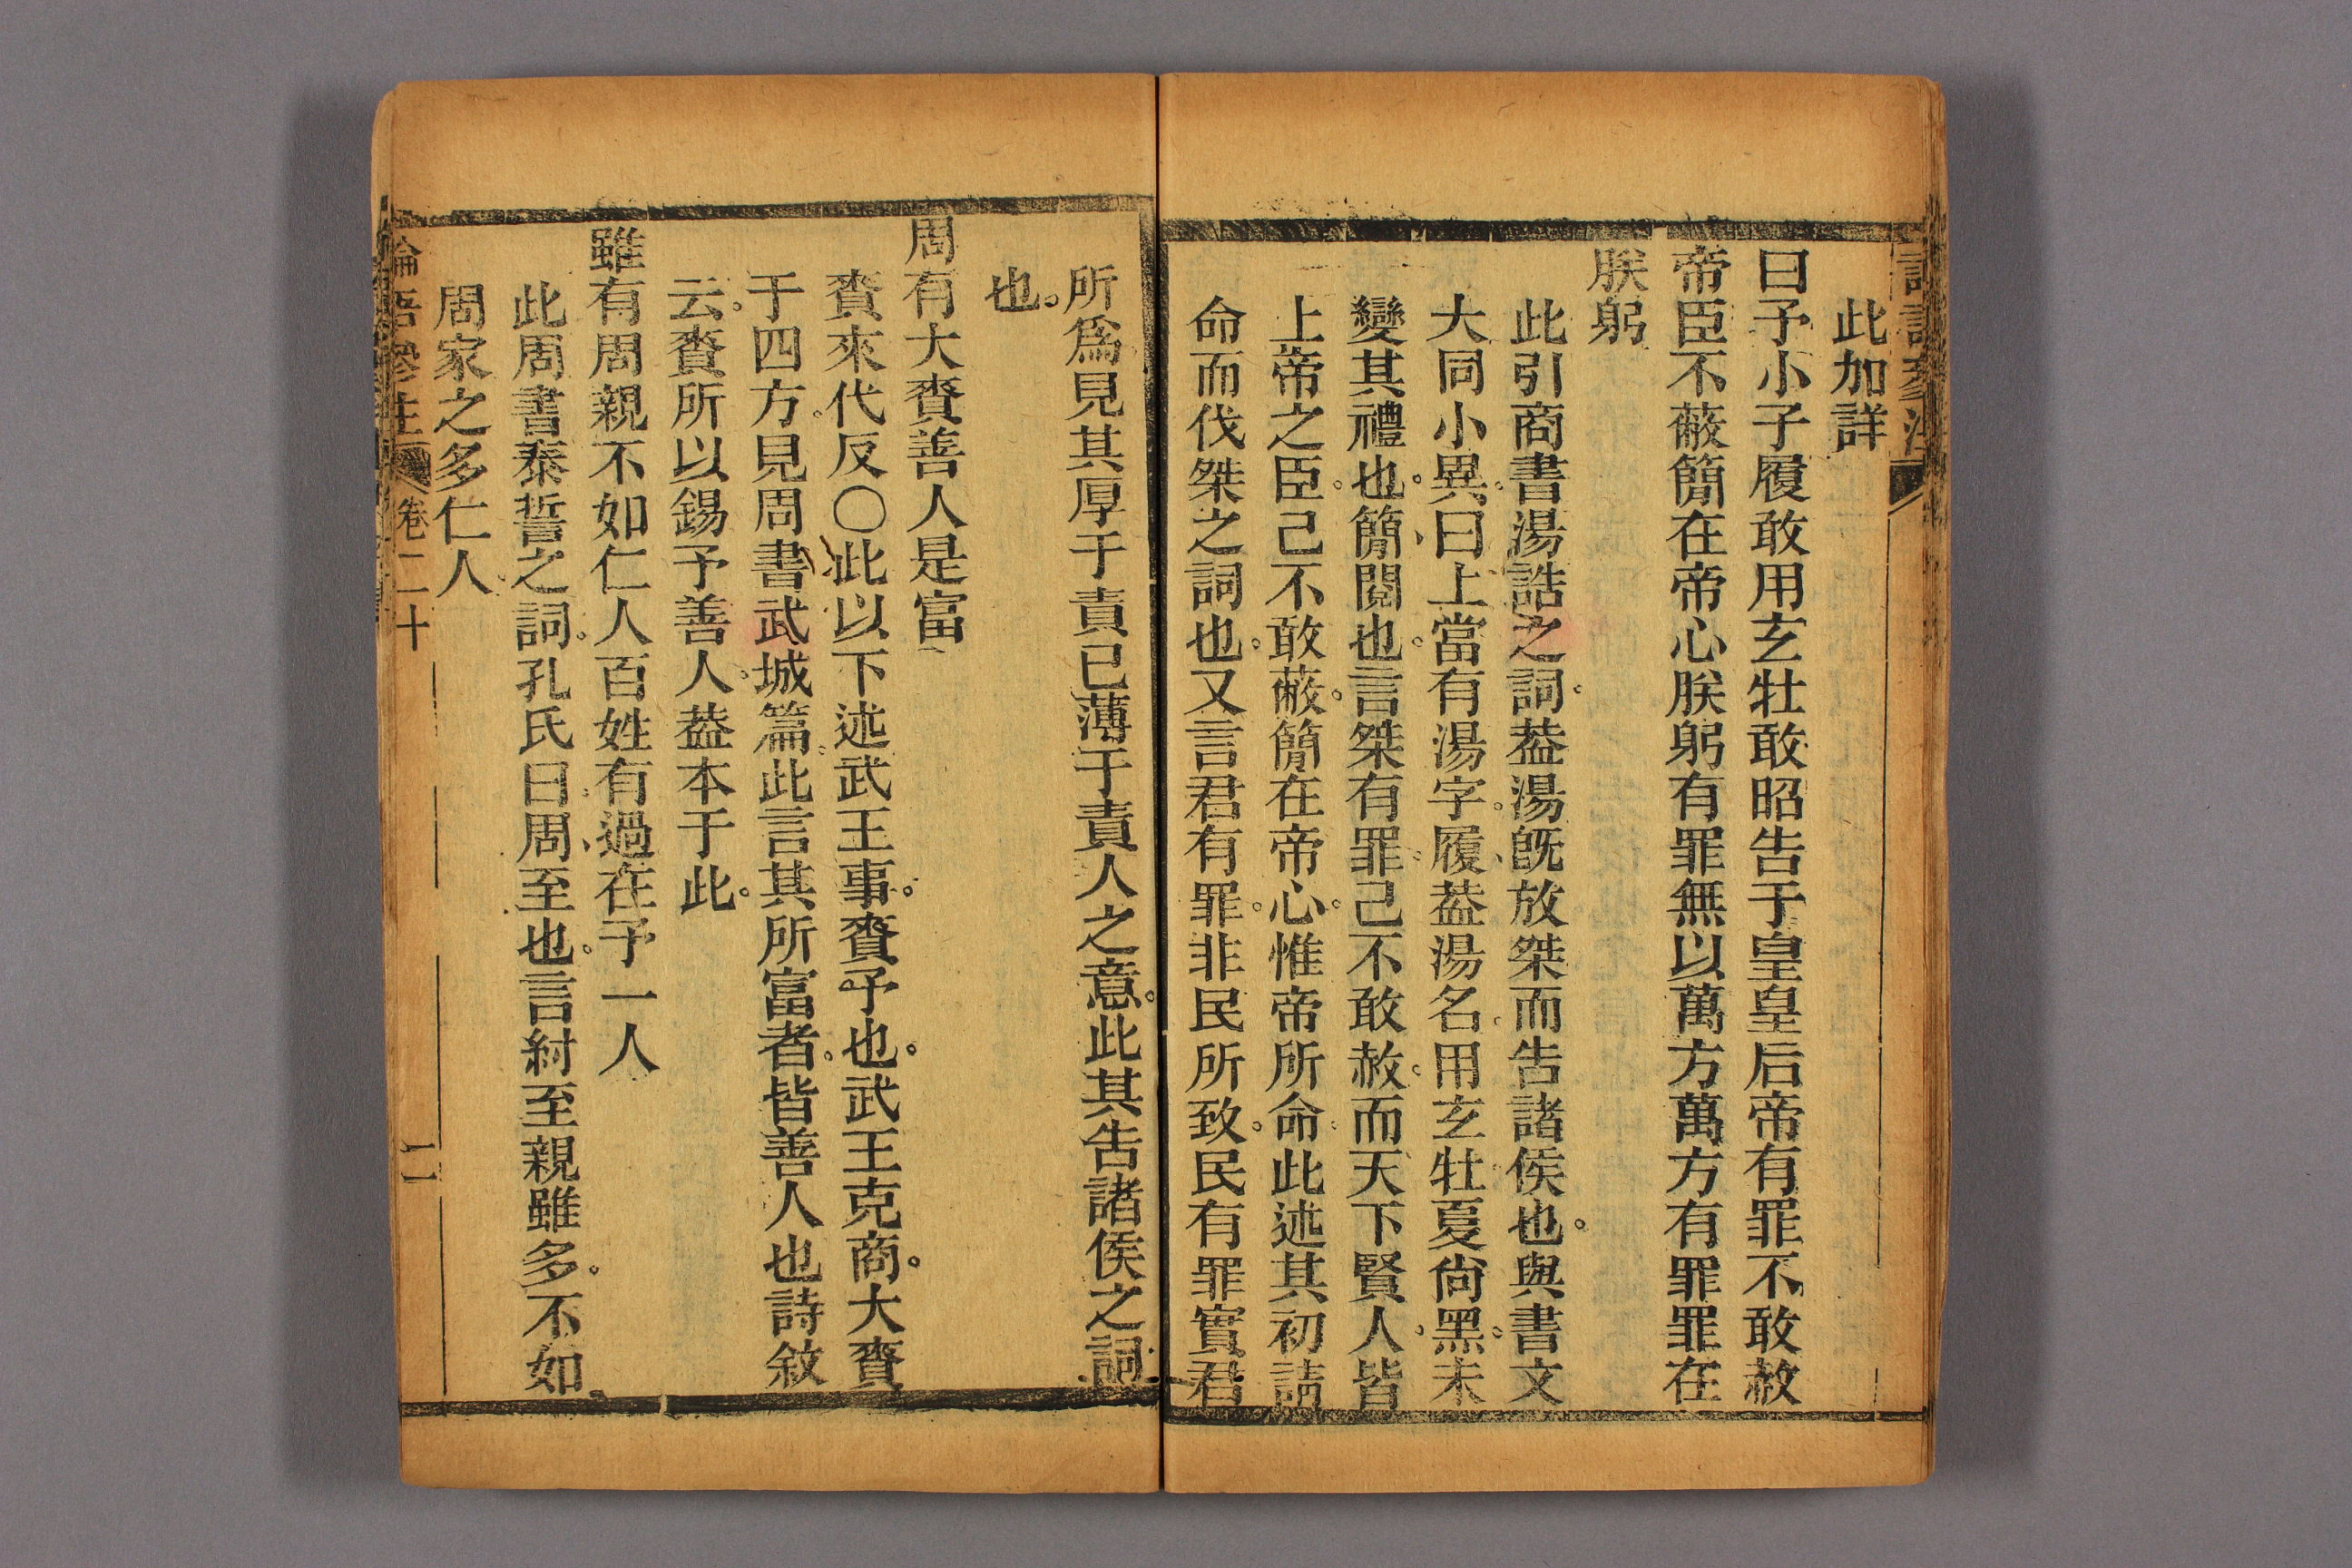 此加詳
曰予小子履敢用玄牡敢昭告于皇皇后帝有罪不敢赦
帝臣不蔽簡在帝心朕躬有罪無以萬方萬方有罪罪在
朕躬
此引商書湯誥之詞。葢湯旣放桀而告諸侯也。與書文
大同小異。曰上當有湯字。履葢湯名。用玄牡夏尙黑。未
變其禮也。簡閱也。言桀有罪己不敢赦。而天下賢人皆
上帝之臣。己不敢蔽。簡在帝心。惟帝所命。此述其初請
命而伐桀之詞也。又言君有罪。非民所致。民有罪實君
所爲見其厚于責已薄于責人之意。此其告諸侯之詞
也。
周有大賚善人是富
賚來代反〇此以下述武王事。賚予也。武王克商。大賚
于四方。見周書武城篇。此言其所富者。皆善人也詩敘
云。賚所以錫予善人。葢本于此。
雖有周親不如仁人百姓有過在予一人
此周書泰誓之詞。孔氏曰。周至也。言紂至親雖多。不如
周家之多仁人
卷二十
二